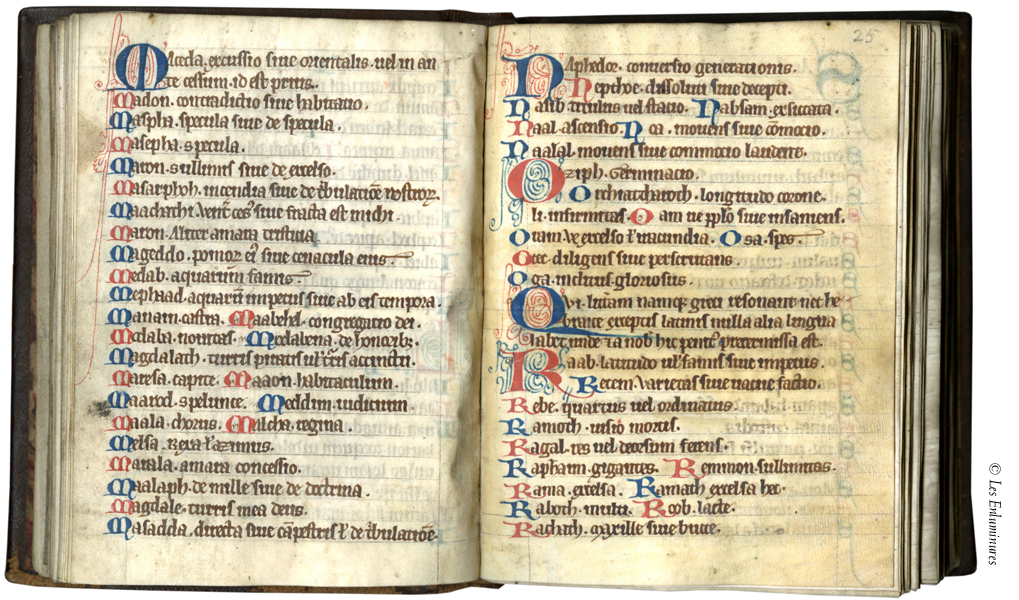 Mceda. excussio siue orientalis. uel in an
te cestum. id est prius.
Madon. contradictio siue habitatio.
Maspha. specula siue de specula.
Masepha. specula.
Maron. sullimis siue de excelso.
Masarphoh. incendia siue de tribulatione
Maachathi siue fracta est michi
Maron. amara tristicia
Mageddo. pomor siue cenacula eius
Medab. aquarum
Mephaad. aquarum impetus siue ab eis tempora.
Manaim. castra. Maabehel. congregatio dei.
Melaba. nouitas. Medalena de
Magdalach. turris
Maresa. capite. Maaon. habitaculum
Maarod. spelunce. Meddim. iudicium
Maala. chorus. Melcha. regina.
Melsa. rixa
Marala. amara concessio.
Maalaph. de mille siue de doctrina.
Magdale. turris mea deus.
Masadda. directa siue
25
Naphedor. conuersio generationis.
Nepthoe. dissoluit siue decepit.
Nasib. titulus uel statio. Nabsam. exsiccata.
Naal. ascensio Noa. mouens siue comocio.
Naalal. mouens siue commocio laudente.
Oziph. Germinacio.
Orchiatcharoth. longitudo corone.
li. infirmitas. Oam ue pplo siue insaniens.
Oram. Ve excelso iracundia. Osa. spes
Occe. diligens siue perscrutans.
Oga. inclitus gloriosus
Qvi. litteram namque greci resonare nec he
breauce exceptis latinis nulla alia lingua
habet. unde pretermissa est.
Raab. latitudo siue impetus.
Recem. Varietas siue uacue factio.
Rebe. quartus uel ordinatus
Ramoth. uisio mortis.
Ragal. uel deorsum ferens.
Raphaim. gigantes. Remmon. sullimitas.
Rama. excelsa. Ramath. excelsa hec.
Raboth. multi. Roob. late.
Rachath. maxille siue
© Les Enluminures